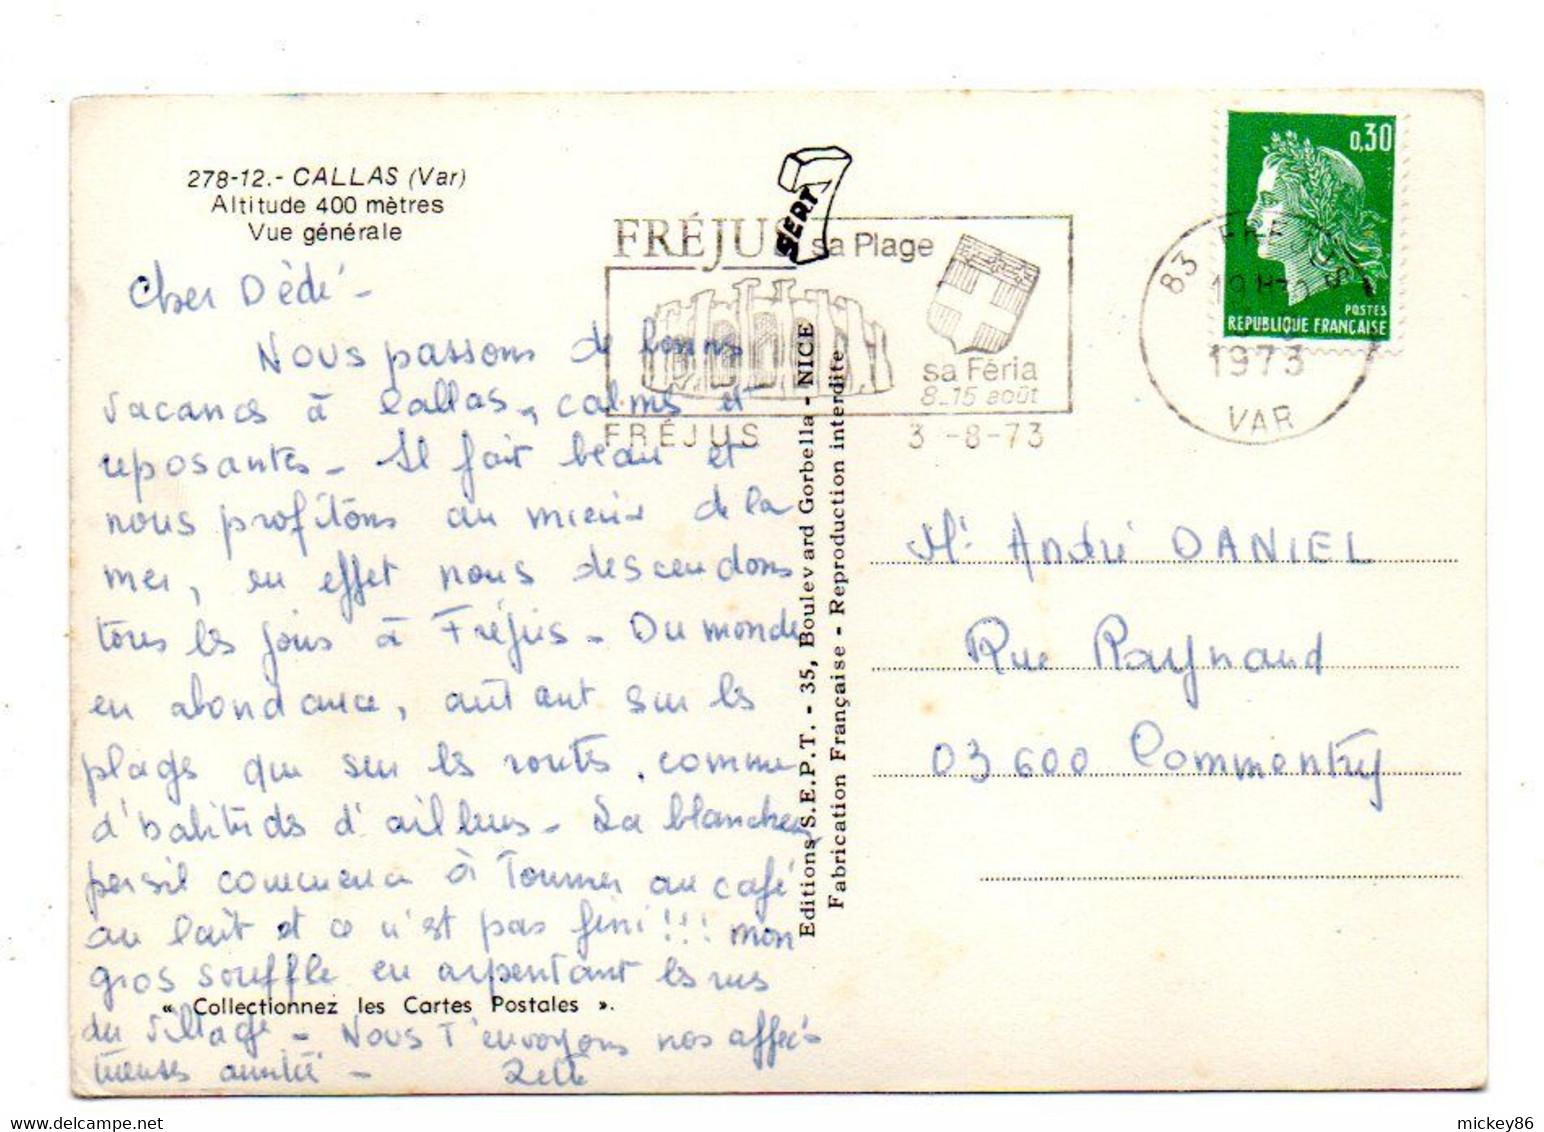 278-12.- CALLAS (Var)
Altitude 400 mètres
Vue générale
Cher Dèdé -
Nous passons de bonnes
vacances à Callas, calmes et
reposantes - Il fait beau et
nous profitons au mieux de la
mer, en effet nous descendons
tous les jours à Fréjus - Du monde
en abondance, autant sur les
plages que sur les routes, comme
d'habitudes d'ailleurs - La blancheur
persil commence à tourner au café
au lait et ce n'est pas fini !!! mon
gros souffle en arpentant les rues
du village - Nous t'envoyons nos affec
tueuses amitié -
« Collectionnez les Cartes Postales ».
SEPT 7
Editions S.E.P.T. - 35, Boulevard Gorbella - NICE
Fabrication Française - Reproduction interdite
FRÉJUS sa Plage
sa Féria
8-15 août
FRÉJUS 3 -8-73
83 FREJUS
19H
1973
VAR
0,30
POSTES
REPUBLIQUE FRANÇAISE
Mr André DANIEL
Rue Raynaud
03600 Commentry
mickey86